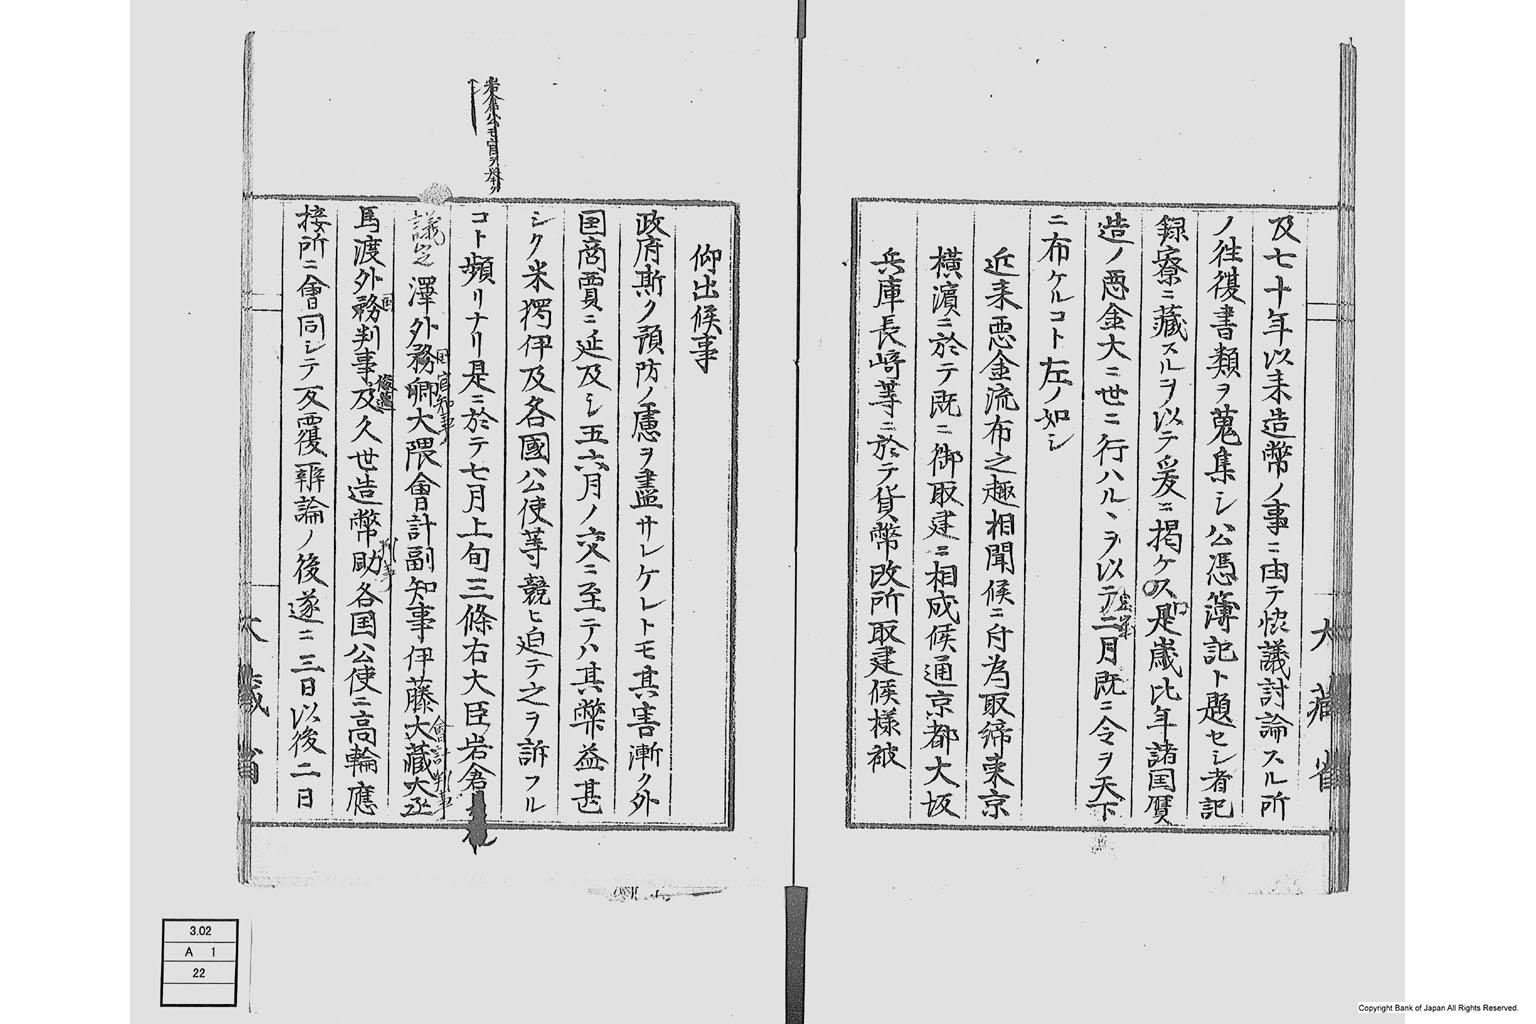 及七十年以来造幣ノ事ニ由テ惚議討論スル所
ノ往復書類ヲ蒐集シ公憑簿記ト題セシ者記
録寮ニ藏スルヲ以テ爰ニ掲ケス是歳比年諸国贋
造ノ悪金大ニ世ニ行ハルヽヲ以テ二月既ニ令ヲ天下
ニ布ケルコト左ノ如シ
近来悪金流布之趣相聞候ニ付為取締東京
横濱ニ於テ既ニ御取建ニ相成候通京都大坂
兵庫長崎等ニ於テ貨幣改所取建候様被
大藏省
仰出候事
政府斯ク預防ノ慮ヲ盡サレケレトモ其害漸ク外
国商賈ニ延及シ五六月ノ交ニ至テハ其弊益甚
シク米孛伊及各國公使等競ヒ迫テ之ヲ訴フル
コト頻リナリ是ニ於テ七月上旬三條右大臣岩倉
岩倉公モ官ヲ挙ク
議定澤外務卿大隈會計副知事伊藤大藏大丞
国官知事
會計判事
馬渡外務判事及久世造幣助各国公使ニ高輪應
国
判事
接所ニ會同シテ反覆辯論ノ後遂ニ三日以後二日
大藏省
3.02
A 1
22
Copyright Bank of Japan All Rights Reserved.